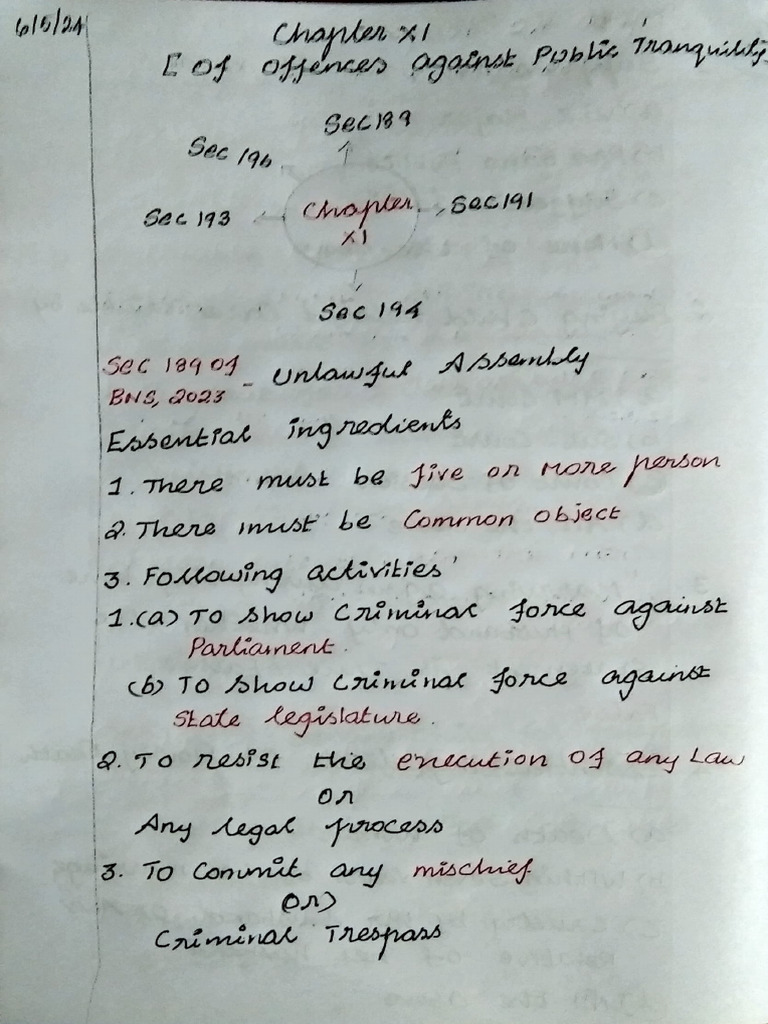 6/5/24
Chapter XI
[ Of offences against Public Tranquility
Sec 189
Sec 196
Sec 193
Chapter
XI
Sec 191
Sec 194
Sec 189 of
BNS, 2023 - Unlawful Assembly
Essential ingredients
1. There must be five or more person
2. There must be Common object
3. Following activities'
1.(a) To show Criminal force against
Parliament.
(b) To show Criminal force against
State legislature.
2. To resist the execution of any Law
or
Any legal process
3. To Commit any mischief
Or)
Criminal Trespass